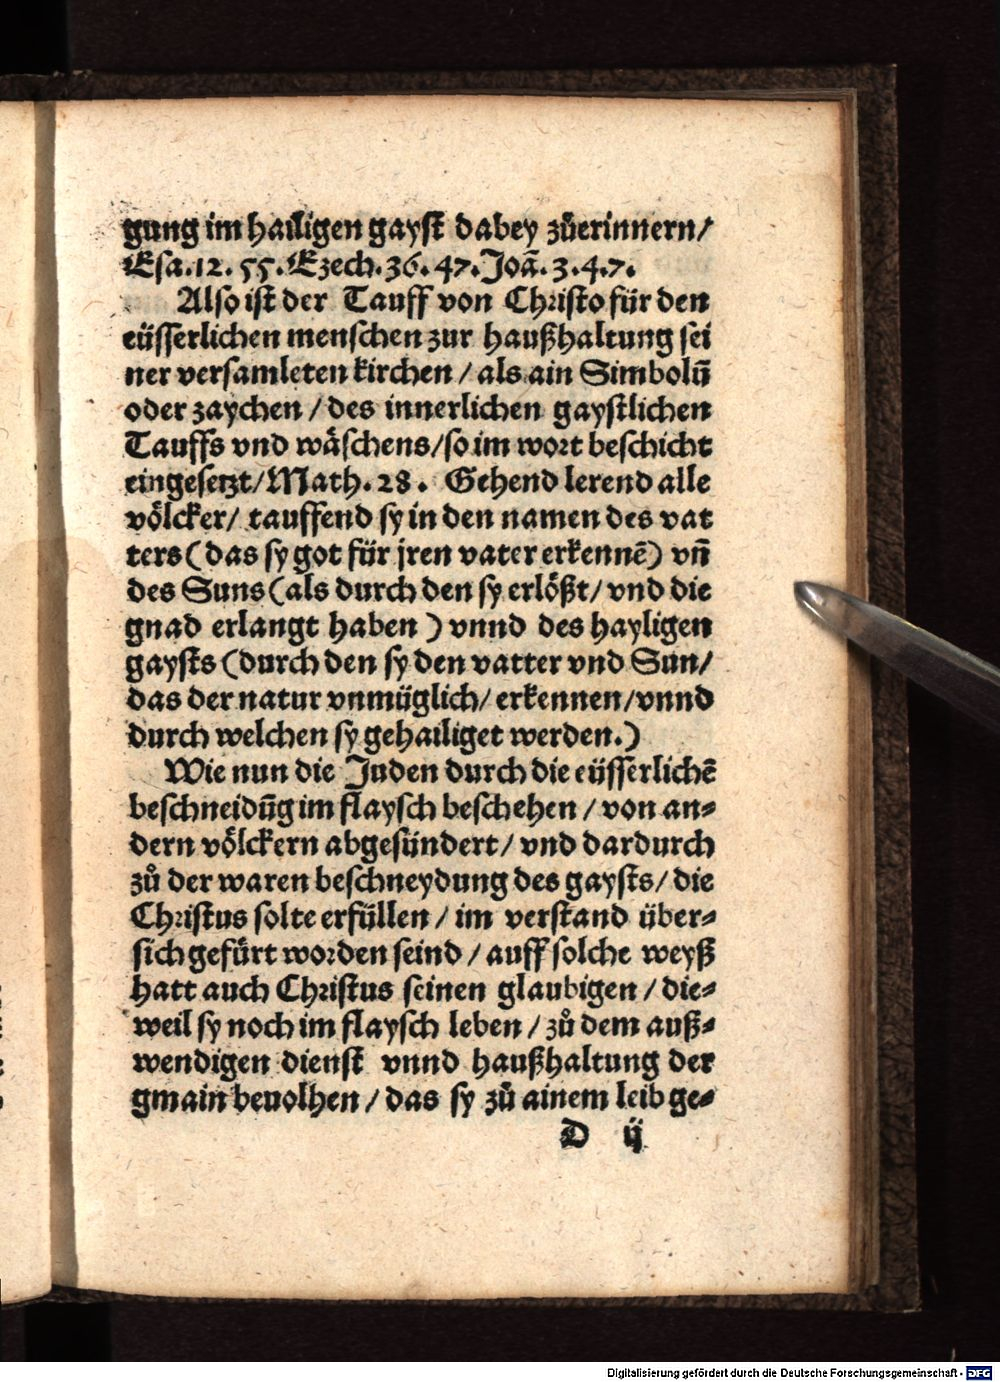 gung im hailigen gayst dabey zůerinnern/
Esa.12.55.Ezech.36.47.Joã.3.4.7.
Also ist der Tauff von Christo für den
eüsserlichen menschen zur haußhaltung sei
ner versamleten kirchen / als ain Simbolũ
oder zaychen / des innerlichen gaystlichen
Tauffs vnd wäschens/so im wort beschicht
eingesetzt/Math.28. Gehend lerend alle
völcker/ tauffend sy in den namen des vat
ters (das sy got für jren vater erkennẽ) vñ
des Suns (als durch den sy erlößt/ vnd die
gnad erlangt haben ) vnnd des hayligen
gaysts (durch den sy den vatter vnd Sun/
das der natur vnmüglich/ erkennen/vnnd
durch welchen sy gehailiget werden.)
Wie nun die Juden durch die eüsserlichẽ
beschneidũg im flaysch beschehen / von an⸗
dern völckern abgesündert/ vnd dardurch
zů der waren beschneydung des gaysts/ die
Christus solte erfüllen / im verstand über⸗
sich gefürt worden seind / auff solche weyß
hatt auch Christus seinen glaubigen / die⸗
weil sy noch im flaysch leben / zů dem auß⸗
wendigen dienst vnnd haußhaltung der
gmain beuolhen / das sy zů ainem leib ge⸗
D ij
Digitalisierung gefördert durch die Deutsche Forschungsgemeinschaft - DFG